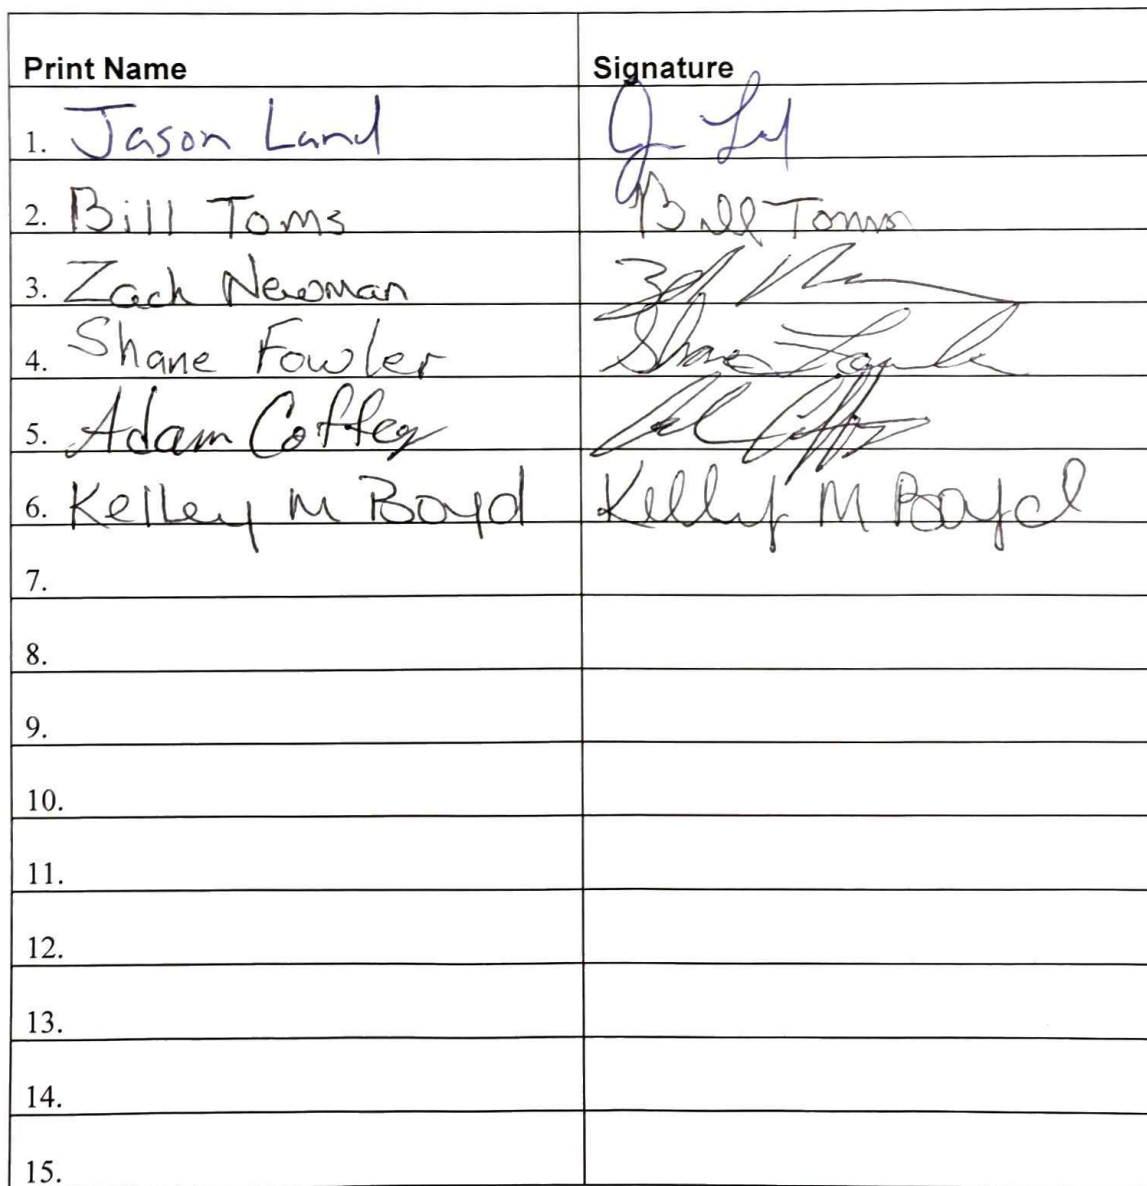 Print Name Signature
1. Jason Land
2. Bill Toms Bill Toms
3. Zach Newman
4. Shane Fowler Shane Fowler
5. Adam Coffey
6. Kelley M Boyd Kelley M Boyd
7.
8.
9.
10.
11.
12.
13.
14.
15.